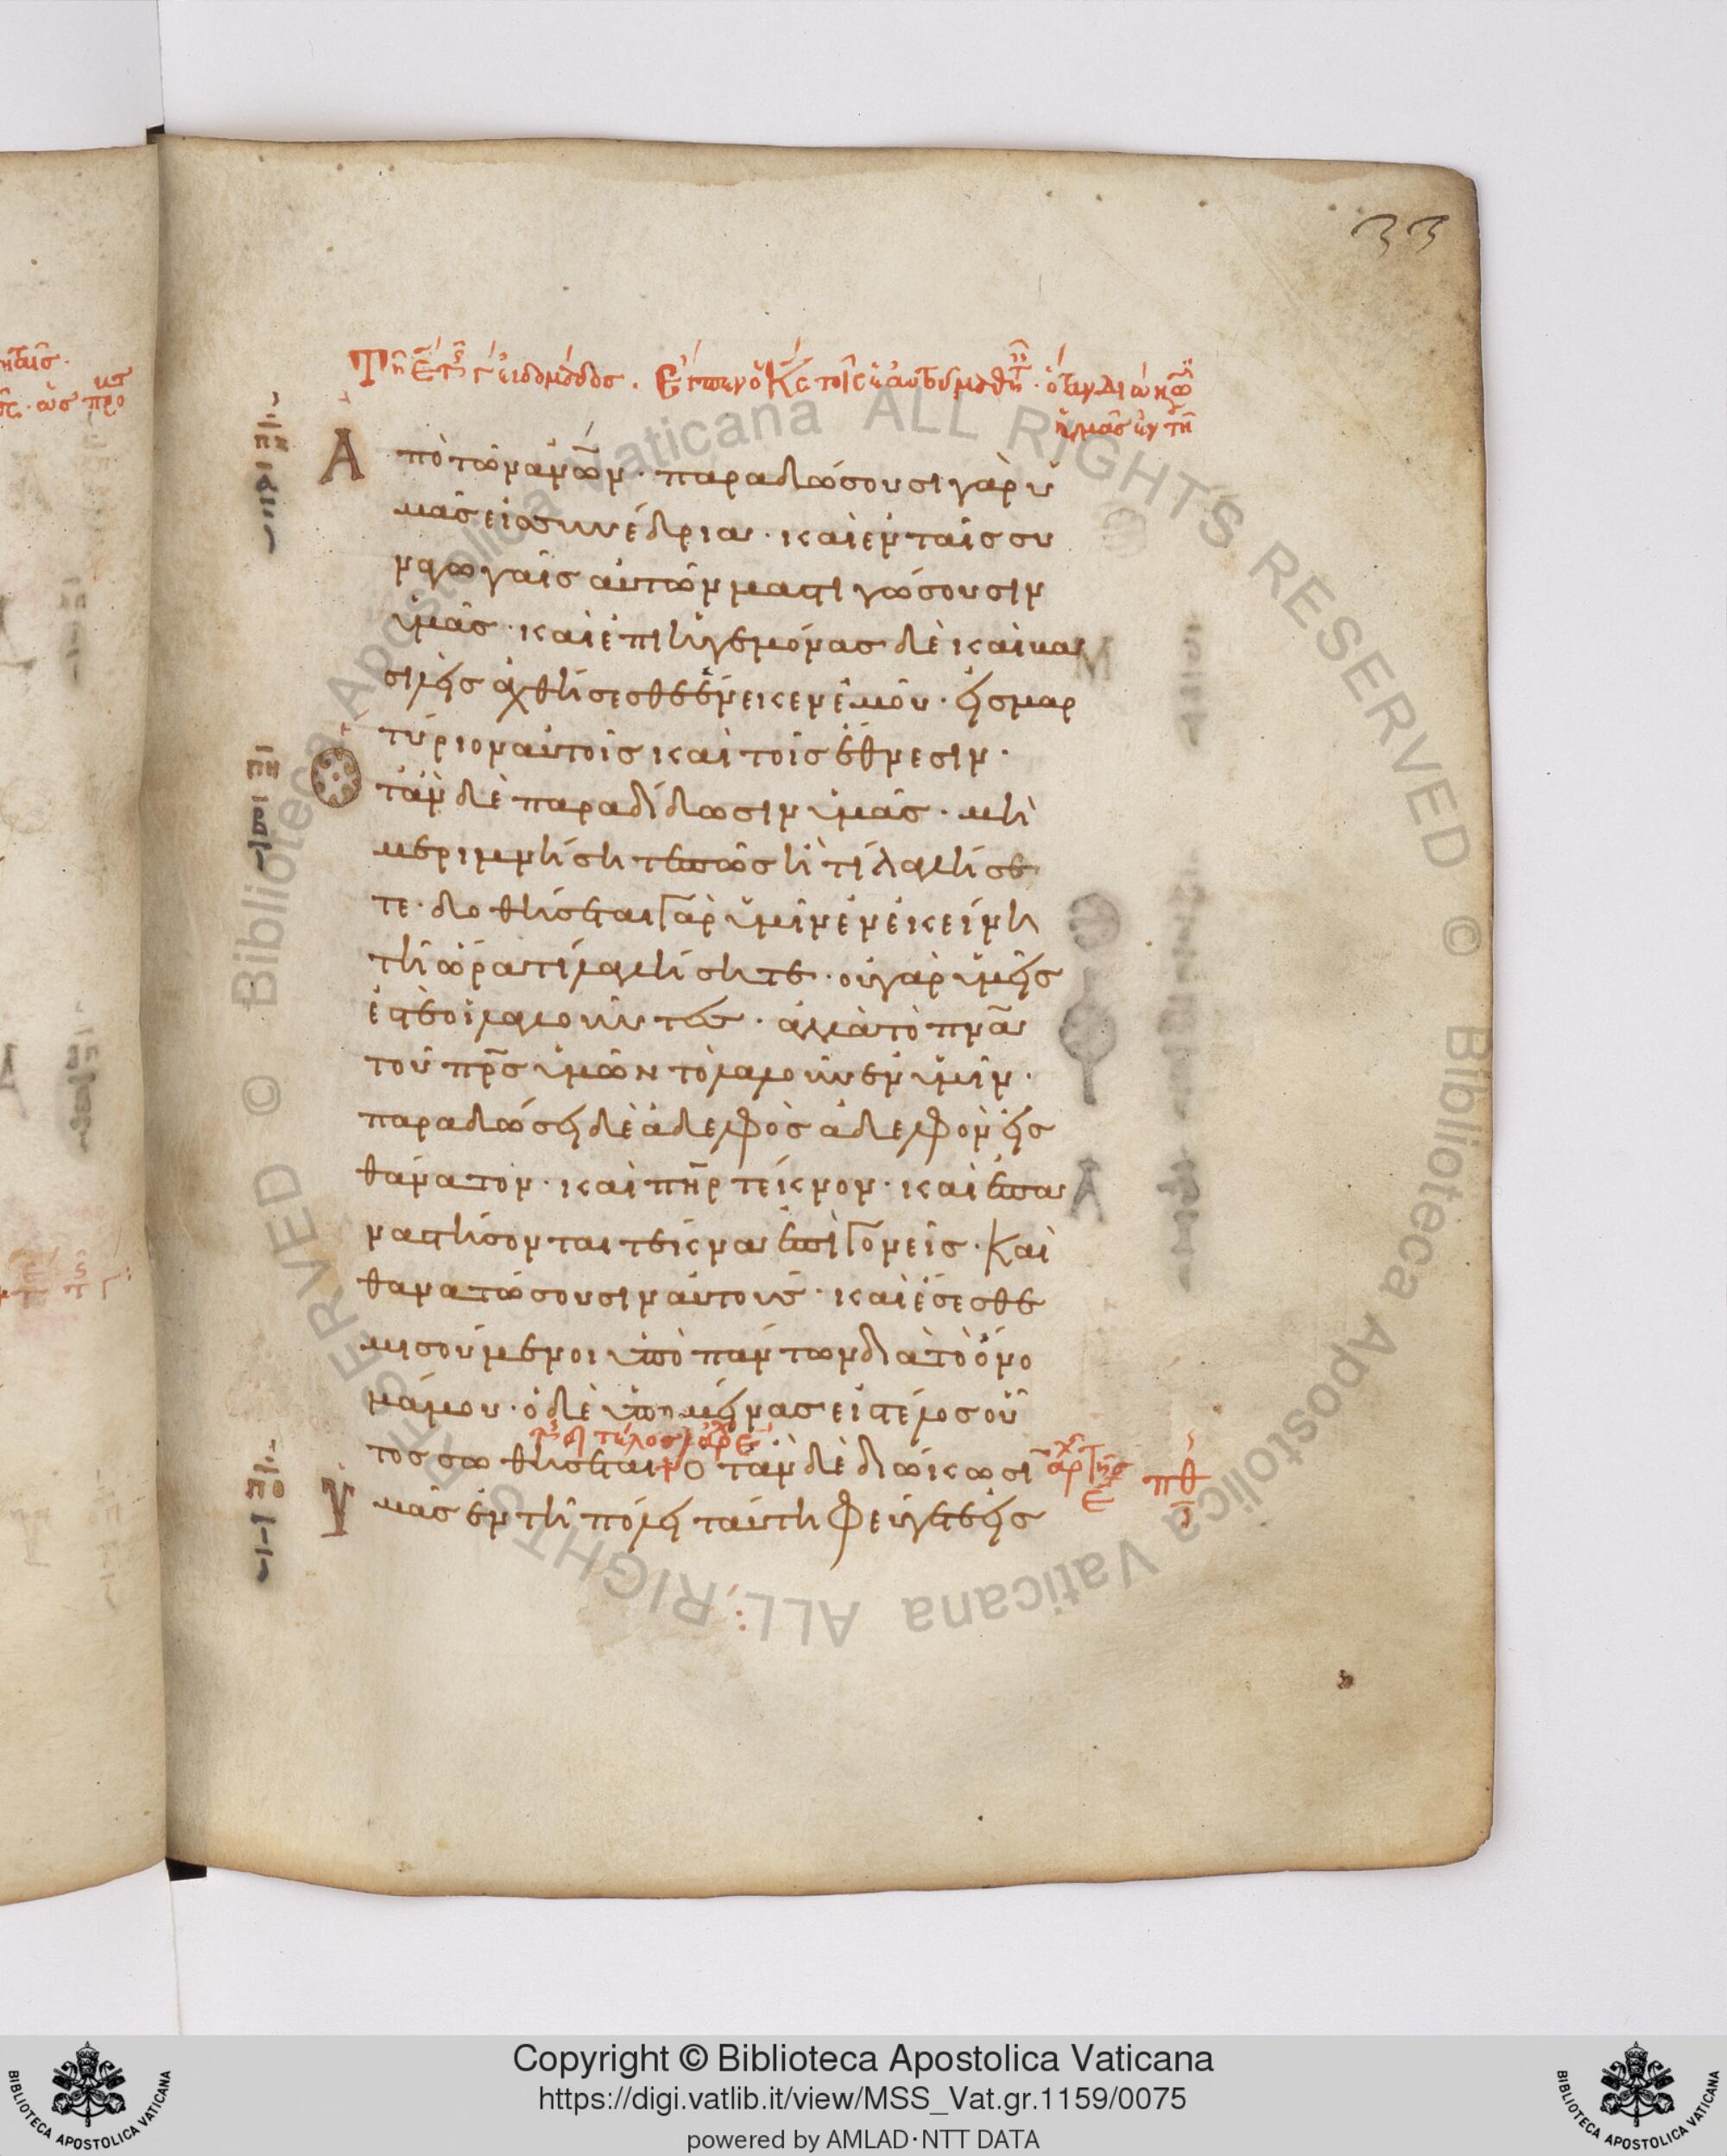 33
Τῇ ε̄ τῆς γ ἑβδομάδος. Εἶπεν ὁ Κς τοῖς ἑαυτοῦ μαθητ. ὅταν διώκω
ὑμᾶς ἐν τῇ
Ἀπὸ τῶν ἀνω̅ν· παραδώσουσι γὰρ ὑ
μᾶς εἰς συνέδρια· καὶ ἐν ταῖς συ
ναγωγαῖς αὐτῶν μαστιγώσουσιν
ὑμᾶς· καὶ ἐπὶ ἡγεμόνας δὲ καὶ βα
σιλεῖς ἀχθήσεσθε ἕνεκεν ἐμοῦ· εἰς μαρ
τύριον αὐτοῖς καὶ τοῖς ἔθνεσιν·
Ὅταν δὲ παραδίδωσιν ὑμᾶς· μὴ
μεριμνήσητε πῶς ἢ τί λαλήση
τε· δοθήσεται γὰρ ὑμῖν ἐν ἐκείνη
τῆ ὥρα τί λαλήσητε· οὐ γὰρ ὑμεῖς
ἐστὲ οἱ λαλοῦντες· ἀλλὰ τὸ πνα
τοῦ πρς ὑμῶν τὸ λαλοῦν ἐν ὑμῖν·
παραδώσει δὲ ἀδελφὸς ἀδελφὸν εἰς
θάνατον· καὶ πηρ τέκνον· καὶ ἐπα
ναστήσονται τέκνα ἐπὶ γονεῖς· Καὶ
θανατώσουσιν αὐτούς· καὶ ἔσεσθε
μισούμενοι ὑπὸ πάντων διὰ τὸ ὄνο
μά μου· ὁ δὲ ὑπομείνας εἰς τέλος οὗ
τέλος
τος σωθήσεται· Ὅταν δὲ διώκωσι
Ὑμᾶς ἐν τῆ πόλει ταύτη φεύγετε εἰς
Copyright © Biblioteca Apostolica Vaticana
https://digi.vatlib.it/view/MSS_Vat.gr.1159/0075
powered by AMLAD·NTT DATA
BIBLIOTECA APOSTOLICA VATICANA
BIBLIOTECA APOSTOLICA VATICANA
© Biblioteca Apostolica Vaticana ALL RIGHTS RESERVED © Biblioteca Apostolica Vaticana ALL RIGHTS RESERVED